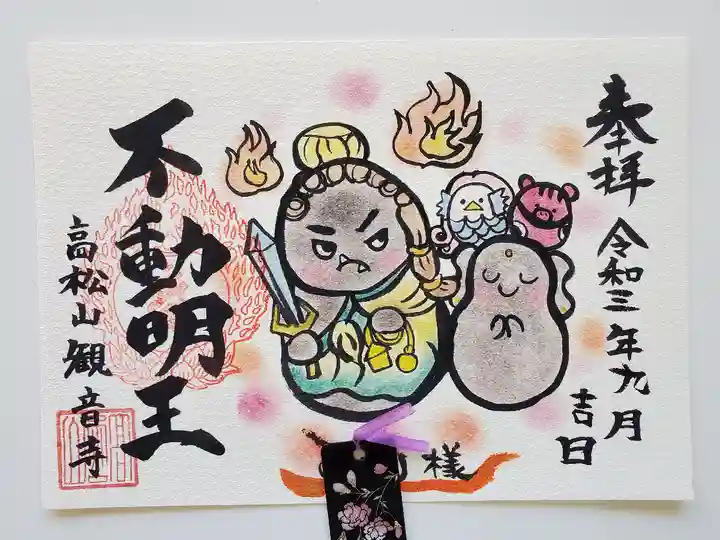 奉拝
令和三年九月
吉日
不動明王
高松山観音寺
様